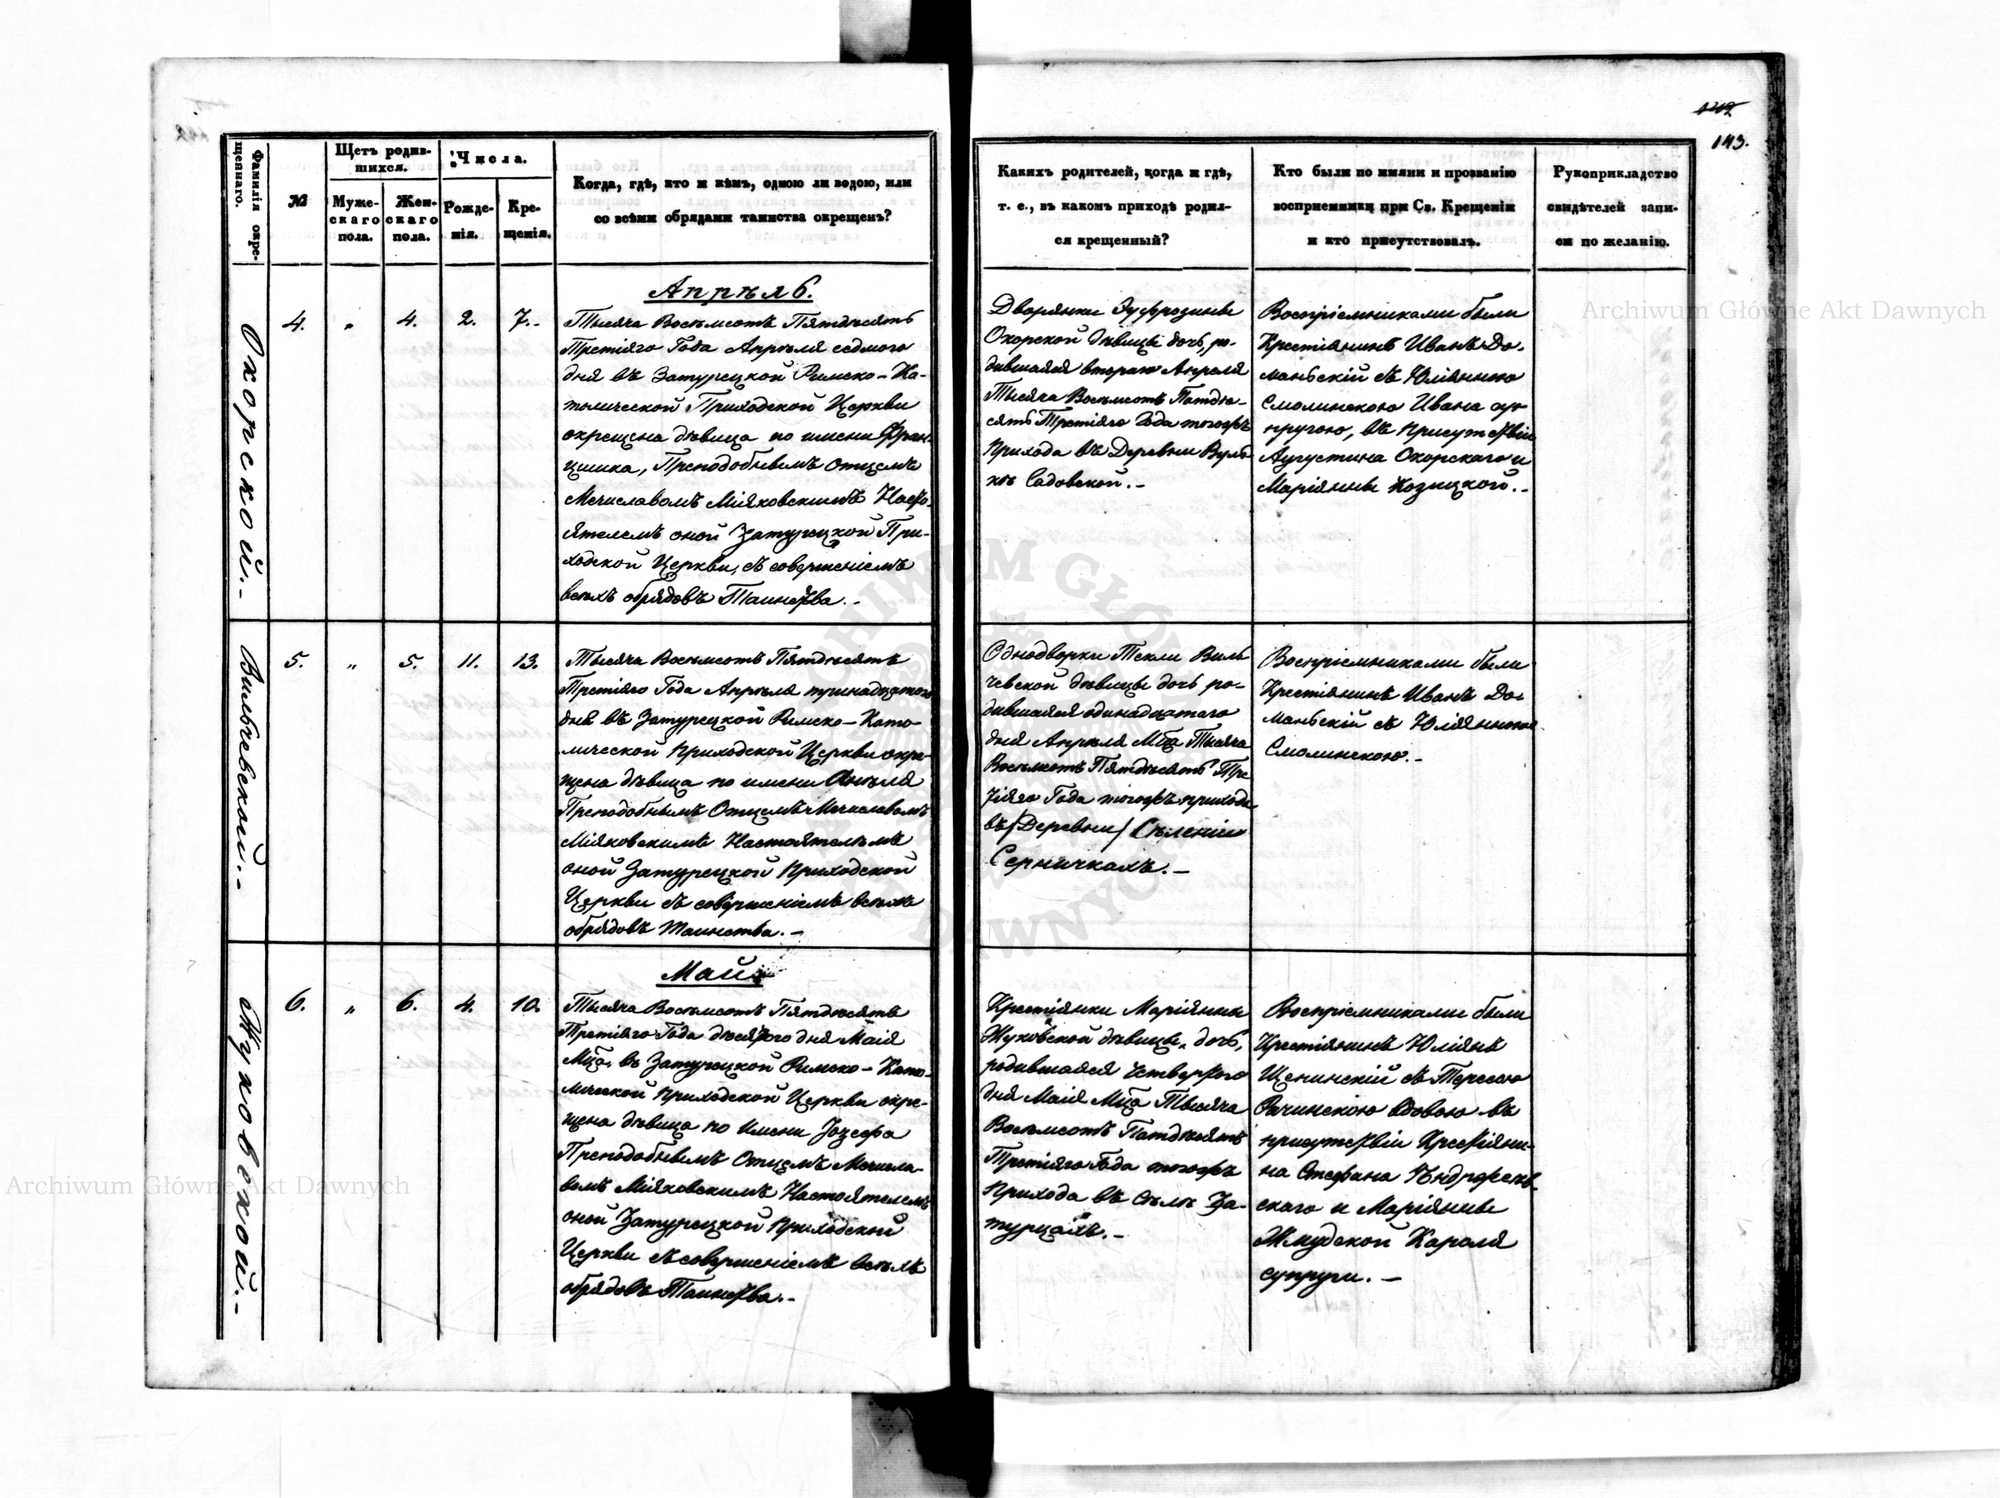 1212
143.
Фамилія окре-
щеннаго.
№
Щетъ родив-
шихся.
Муже-
скаго
пола.
Жен-
скаго
пола.
Числа.
Рожде-
нія.
Кре-
щенія.
Когда, гдѣ, кто и кѣмъ, одною ли водою, или
со всѣми обрядами таинства окрещенъ?
Какихъ родителей, когда и гдѣ,
т. е., въ какомъ приходѣ родил-
ся крещенный?
Кто были по имяни и прозванію
восприемники при Св. Крещеніи
и кто присутствовалъ.
Рукоприкладство
свидѣтелей запи-
си по желанію.
Апрѣль
Окорской.-
4. „ 4. 2. 7.-
Тысяча Восѣмсотъ Пятдѣсятъ
Третіяго Года Апрѣля седмого
дня въ Затурецкой Римско-Ка-
толической Приходской Церкви
окрещена дѣвица по имени Фран-
цишка, Преподобнымъ отцемъ
Мечиславомъ Міяковскимъ Насто-
ятелемъ оной Затурецкой При-
ходской Церкви, съ совершеніемъ
всѣхъ обрядовъ Таинства.-
Дворянки Эуфрозины
Окорской дѣвицы дочь, ро-
дившаяся втораго Апреля
Тысяча Восѣмсотъ Пятдѣ-
сятъ Третіяго Года тогожъ
прихода въ Деревни Вуль-
къ Садовской.-
Воспріемниками были
Крестіянинъ Иванъ До-
маньскій съ Юліянною
Смолинскою Ивана су-
пругою, въ присутствіи
Аугустина Окорскаго и
Маріянны Козицкой.-
Вильчевской.-
5. „ 5. 11. 13.
Тысяча Восѣмсотъ Пятдѣсятъ
Третіяго Года Апрѣля тринадцатого
дня въ Затурецкой Римско-Като-
лической Приходской Церкви окре-
щена дѣвица по имени Анѣля
Преподобнымъ Отцемъ Мечиславомъ
Міяковскимъ Настоятелѣмъ
оной Затурецкой Приходской
Церкви съ совершеніемъ всѣхъ
обрядовъ таинства.-
Однодворки Текли Виль-
чевской дѣвицы дочь ро-
дившаяся одинадцатаго
дня Апрѣля Мца Тысяча
Восѣмсотъ Пятдѣсятъ Тре-
тіяго Года тогожъ прихода
въ (Деревни) Сѣленіи
Серничкахъ.-
Воспріемниками были
Крестіянинъ Иванъ До-
маньскій съ Юліянною
Смолинскою.-
Май
Жуковской.-
6. „ 6. 4. 10.
Тысяча Восѣмсотъ Пятдѣсятъ
Третіяго Года дѣсятого дня Маія
Мца, въ Затурецкой Римско-Като-
лической Приходской Церкви окре-
щена дѣвица по имени Іозефа
Преподобнымъ Отцемъ Мечисла-
вомъ Міяковскимъ Настоятелемъ
оной Затурецкой Приходской
Церкви съ совершеніемъ всѣхъ
обрядовъ Таинства.-
Крестіянки Маріянны
Жуковской дѣвицы, дочь,
родившаяся четвертого
дня Маія Мца Тысяча
Восѣмсотъ Пятдѣсятъ
Третіяго Года тогожъ
Прихода въ Сѣлѣ За-
турцахъ.-
Воспріемниками были
Крестіянинъ Юліянъ
Щенинскій съ Тересою
Рачинскою вдовою въ
присутствіи Крестіяни-
на Стефана
скаго и Маріянны
Жмудской Кароля
супруги.-
Archiwum Główne Akt Dawnych
Archiwum Główne Akt Dawnych
ARCHIWUM GŁÓWNE
DAWNYCH